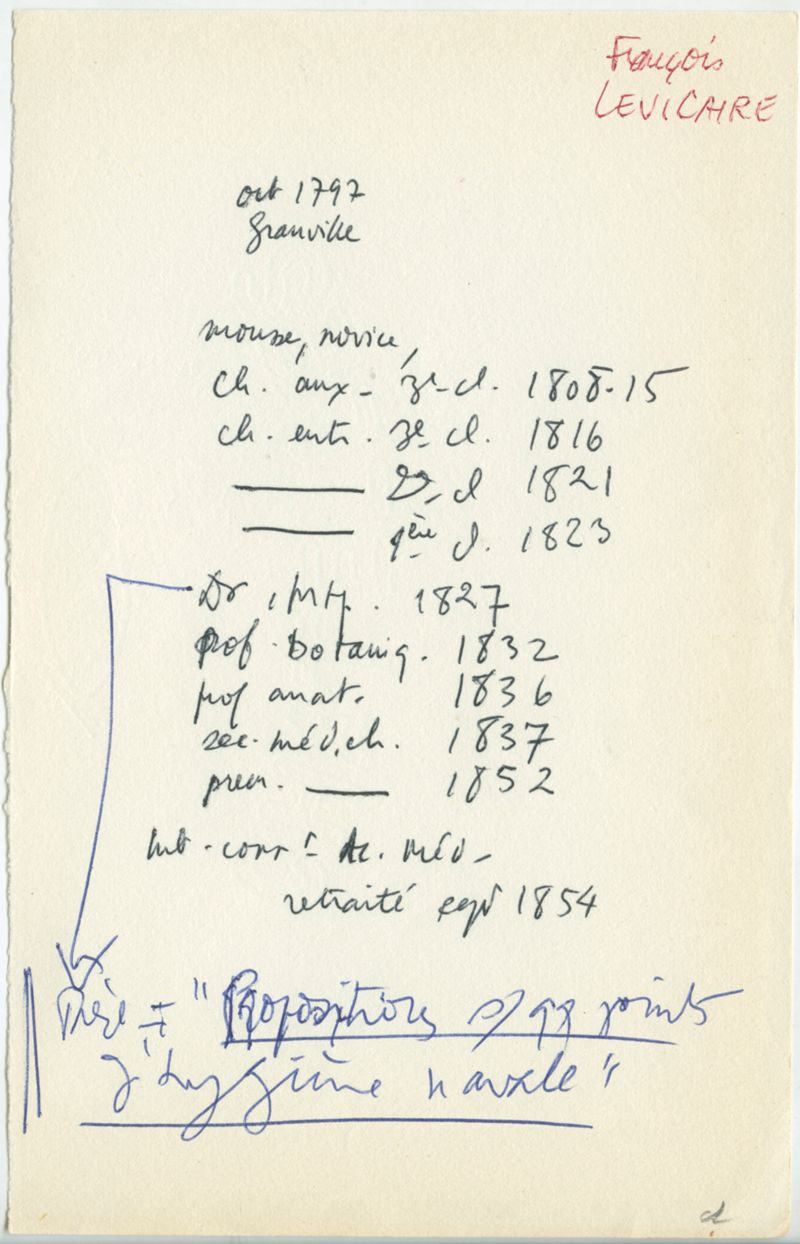 François
LEVICAIRE
oct 1797
Granville
mousse, novice,
ch. aux - 3e cl. 1808-15
ch. entr. 3e cl. 1816
——— 2e cl 1821
——— 1ère cl. 1823
Dr Mtp. 1827
prof. botaniq. 1832
prof anat. 1836
sec. méd. ch. 1837
prem. ——— 1852
mb - corrt Ac. méd -
retraité 1854
Thèse "Propositions s/ qq points
d'hygiène navale"